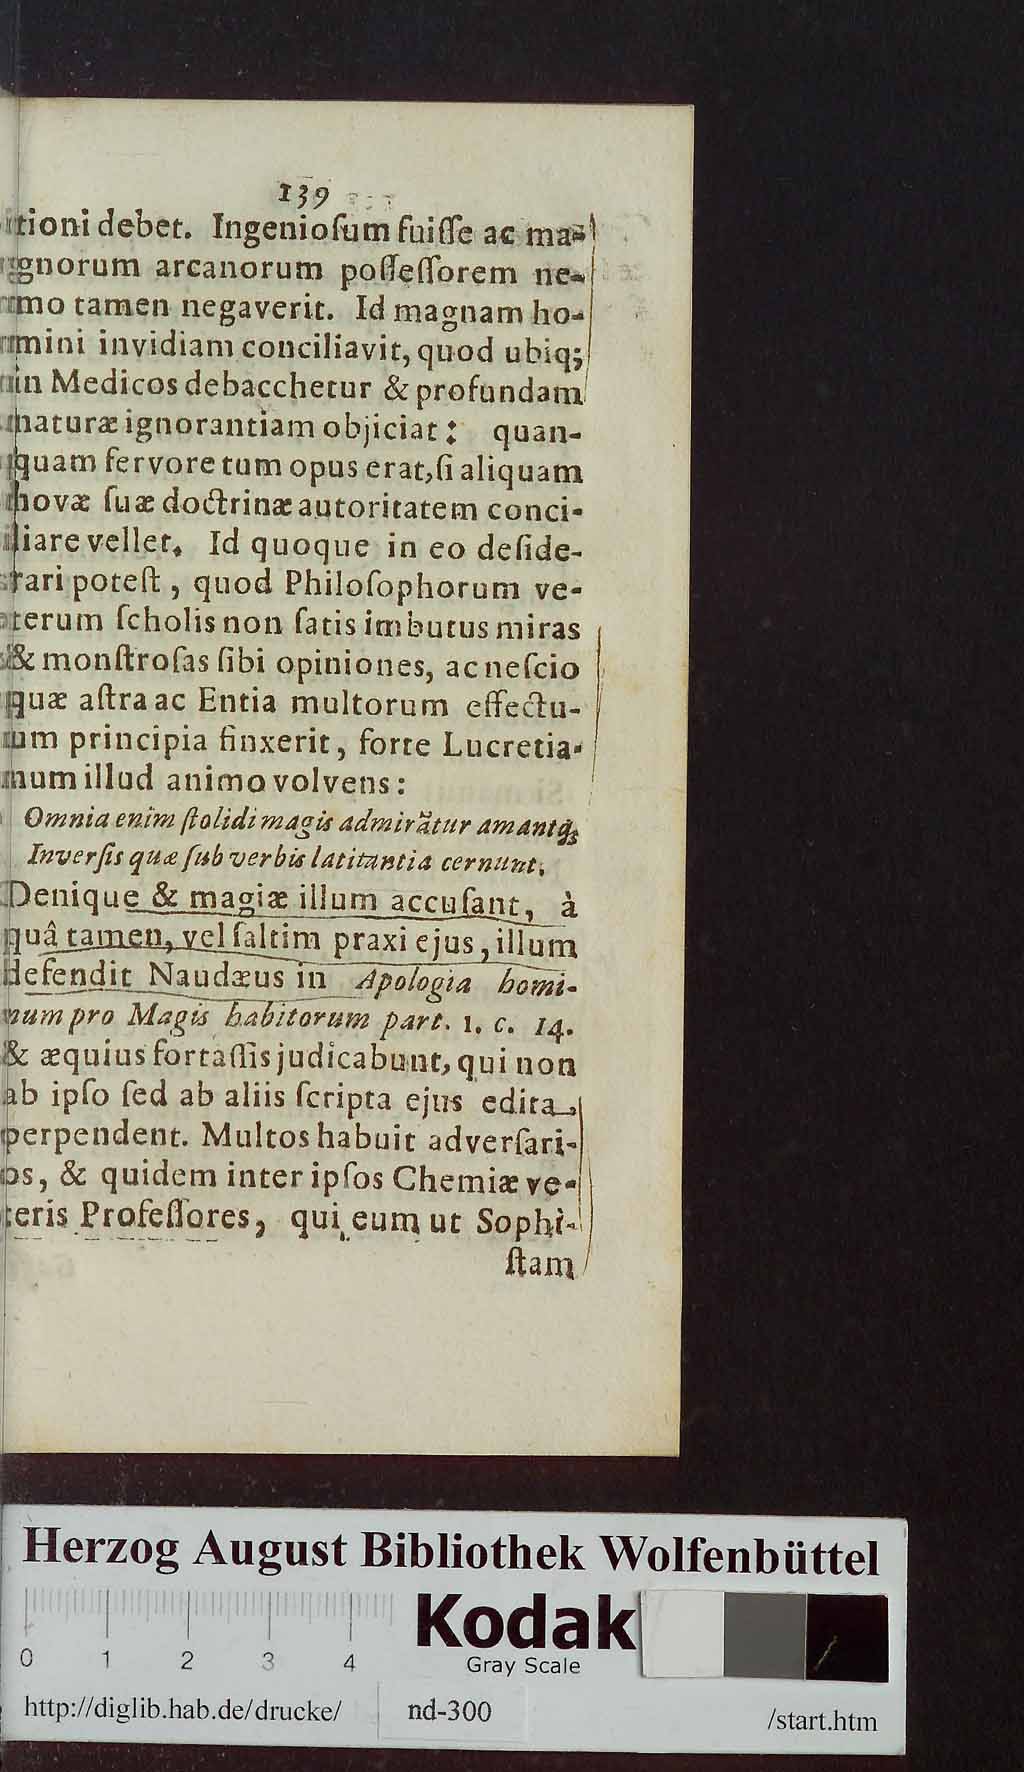 139
tioni debet. Ingenioſum fuiſſe ac ma-
gnorum arcanorum poſſeſſorem ne-
mo tamen negaverit. Id magnam ho-
mini invidiam conciliavit, quod ubiq;
in Medicos debacchetur & profundam
naturæ ignorantiam objiciat: quan-
quam fervore tum opus erat, ſi aliquam
novæ ſuæ doctrinæ autoritatem conci-
liare vellet. Id quoque in eo deſide-
rari poteſt, quod Philoſophorum ve-
terum ſcholis non ſatis imbutus miras
& monſtroſas ſibi opiniones, ac neſcio
quæ aſtra ac Entia multorum effectu-
um principia finxerit, forte Lucretia-
num illud animo volvens:
Omnia enim ſtolidi magis admirãtur amantq;
Inverſis quæ ſub verbis latitantia cernunt.
Denique & magiæ illum accuſant, à
quâ tamen, vel ſaltim praxi ejus, illum
defendit Naudæus in Apologia homi-
num pro Magis habitorum part. 1. c. 14.
& æquius fortaſſis judicabunt, qui non
ab ipſo ſed ab aliis ſcripta ejus edita
perpendent. Multos habuit adverſari-
os, & quidem inter ipſos Chemiæ ve-
teris Profeſſores, qui eum ut Sophi-
ſtam
Herzog August Bibliothek Wolfenbüttel
Kodak
Gray Scale
0 1 2 3 4
http://diglib.hab.de/drucke/ nd-300 /start.htm